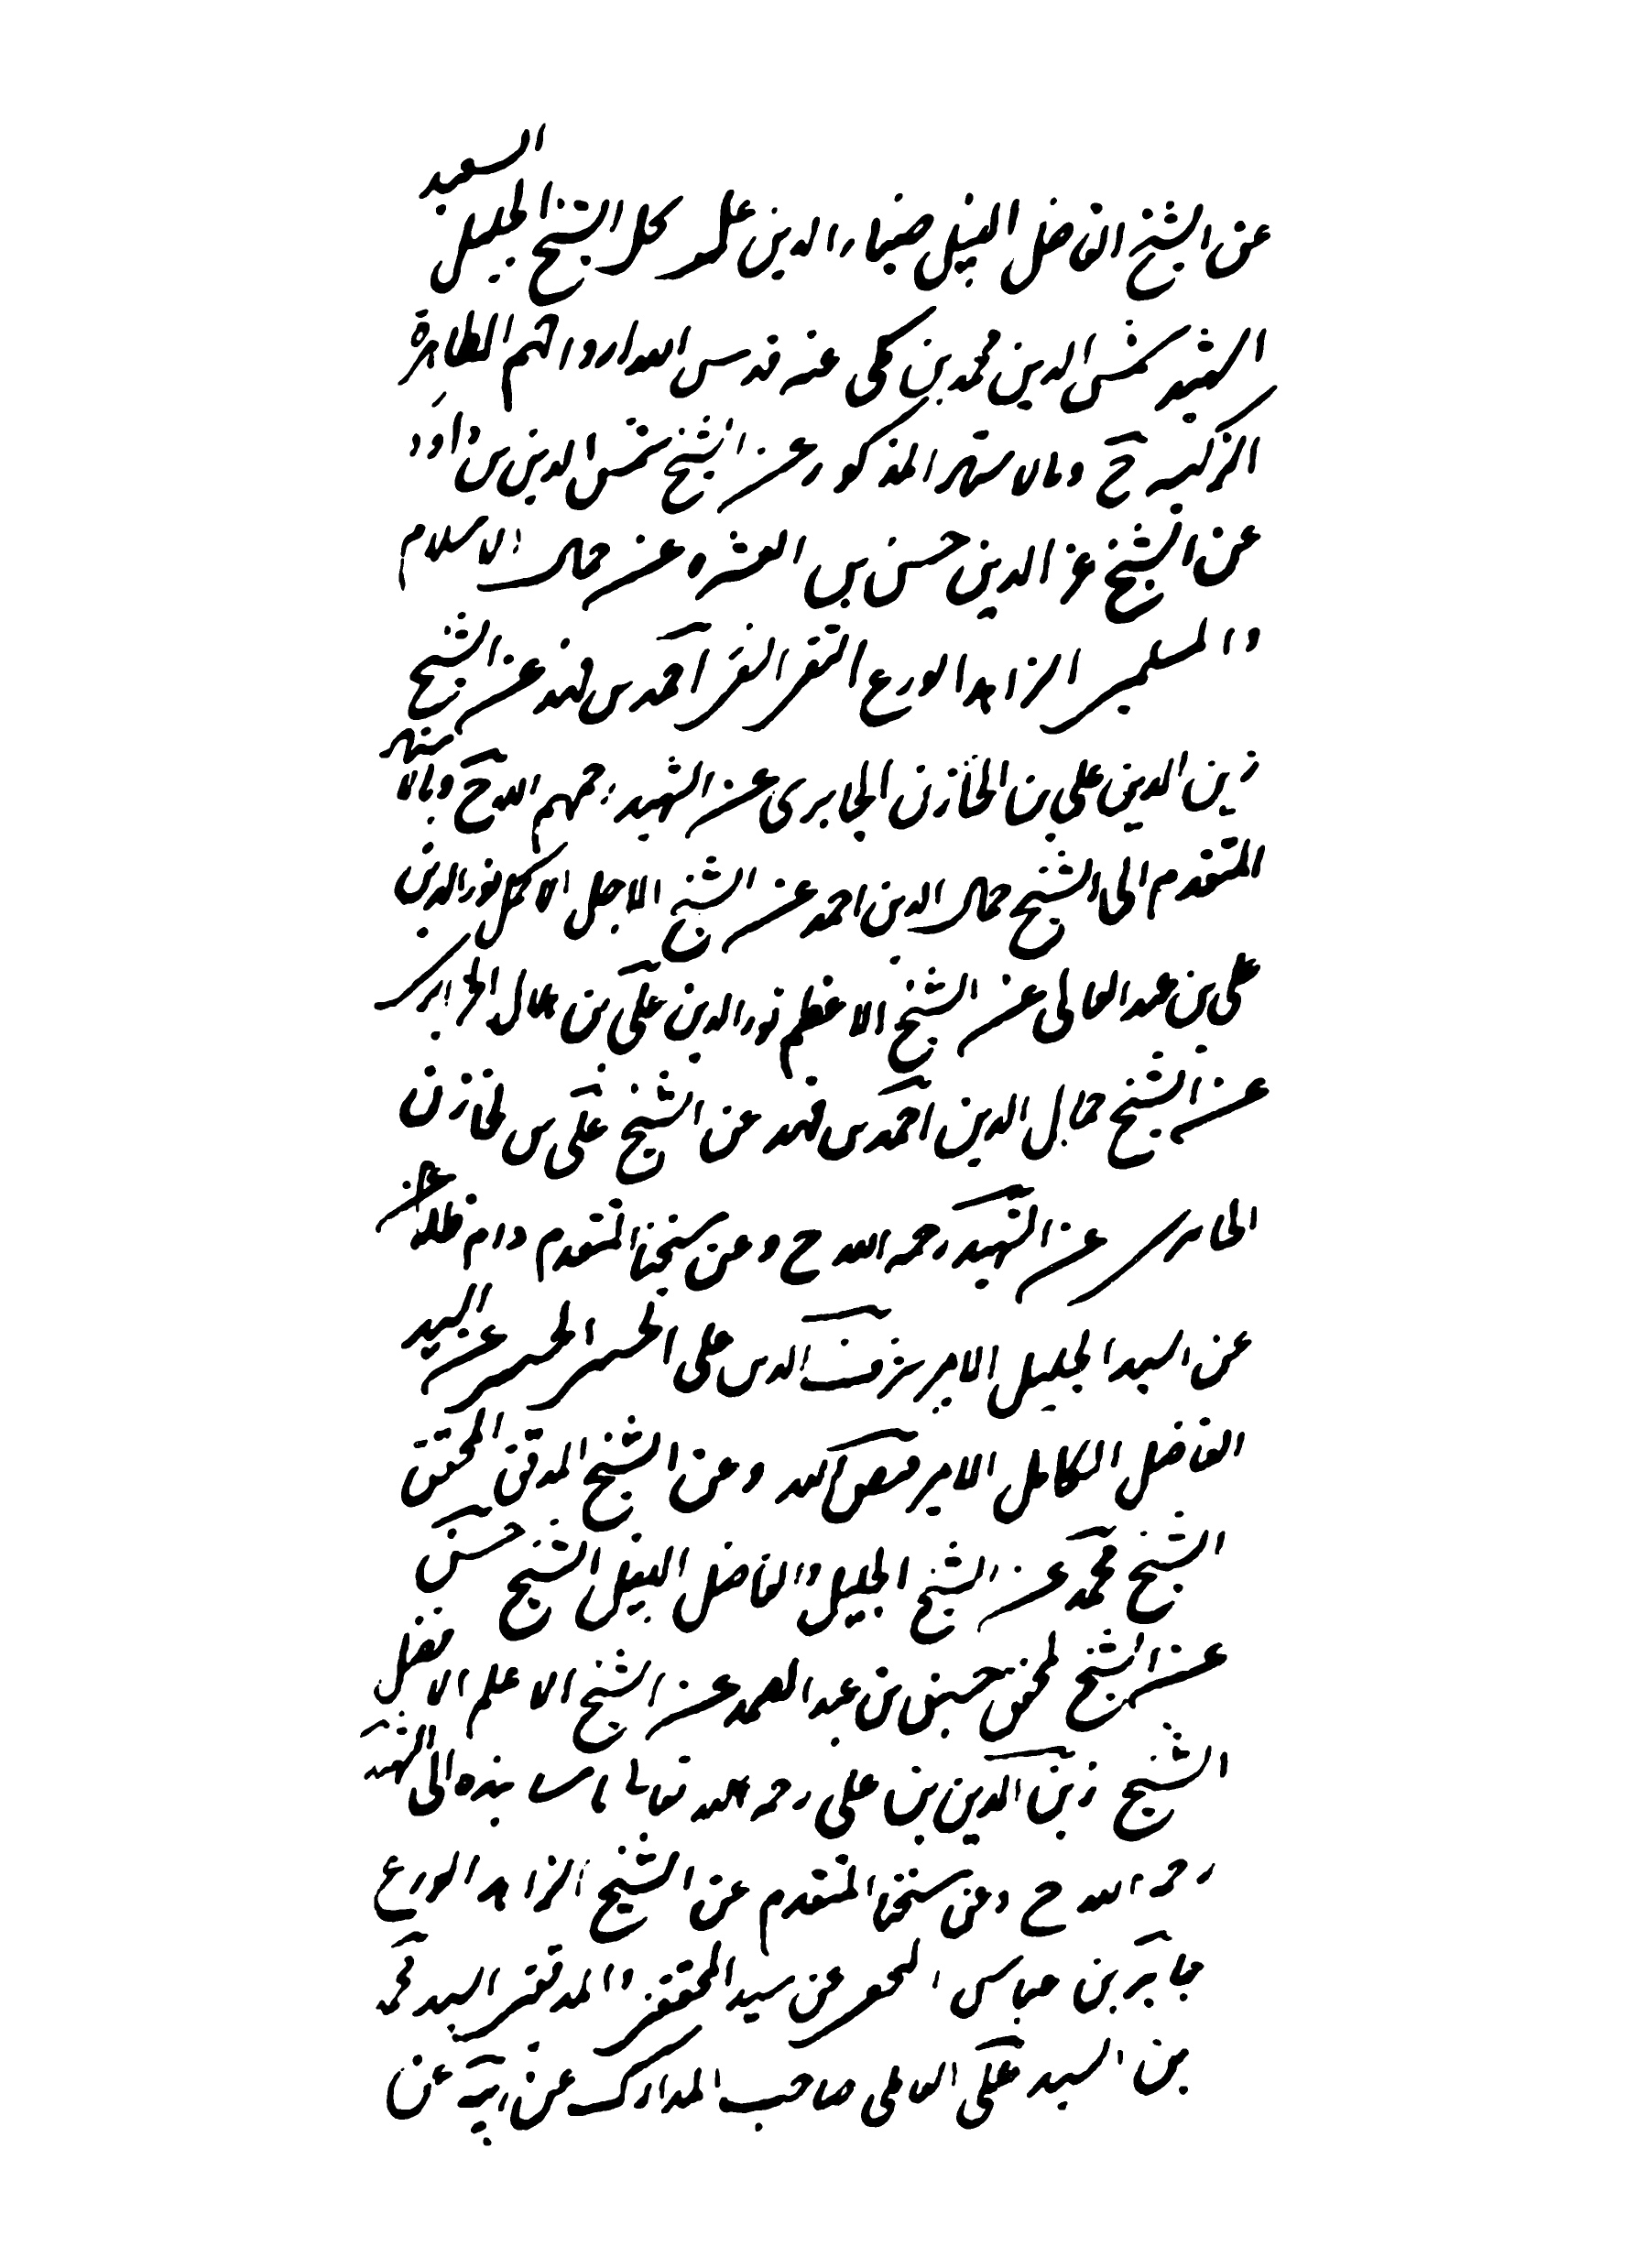 عن الشيخ الفاضل النبيل ضياء الدين على نجل الشيخ الجليل السعيد
الشهيد شمس الدين محمد بن مكى عنه قدس الله ارواحهم الطاهرة
الزكية ح وبالاسناد المذكور عن الشيخ شمس الدين بن داود
عن الشيخ عز الدين حسن بن العشره عن جمال الاسلام
والمسلمين الزاهد الورع التقى النقى احمد بن فهد عن الشيخ
زين الدين على بن الخازن الجابرى عن الشهيد رحمهم الله ح وبالاسناد
المتقدم الى الشيخ جمال الدين احمد عن الشيخ الاجل الاكمل نور الدين
على بن عبد العالى عن الشيخ الاعظم نور الدين على بن هلال الجزايرى
عن الشيخ جمال الدين احمد بن فهد عن الشيخ على بن الخازن
الحايرى عن الشهيد رحمه الله ح وعن شيخنا المتقدم دام ظله
عن السيد الجليل الامير شرف الدين على الحسنى الحسينى عن السيد
الفاضل الكامل الامير فيض الله وعن الشيخ المدقق المحقق
الشيخ محمد عن الشيخ الجليل والفاضل النبيل الشيخ حسن
عن الشيخ المحقق حسين بن عبد الصمد عن الشيخ الاعلم الافضل
الشيخ زين الدين بن على رحمه الله تعالى باسانيده الى الشهيد
رحمه الله ح وعن شيخنا المتقدم عن الشيخ الزاهد الورع
جابر بن عباس النجفى عن سيد المحققين والمدققين السيد محمد
بن السيد على العاملى صاحب المدارك عن ابيه عن